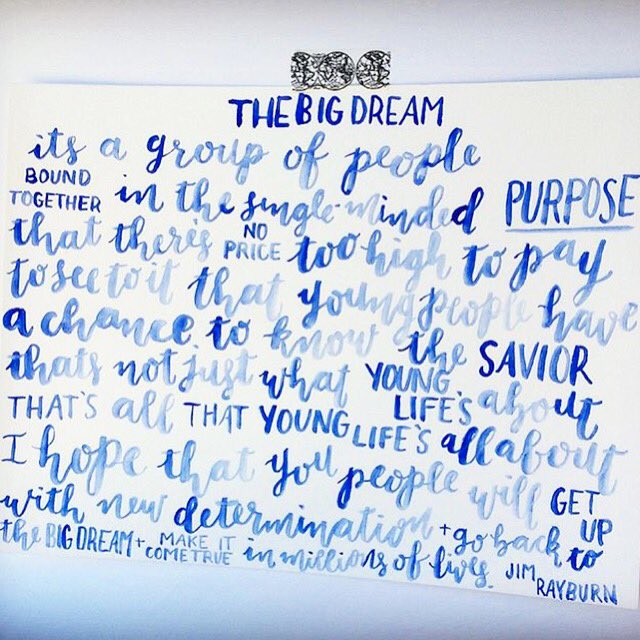 THE BIG DREAM
its a group of people
BOUND TOGETHER in the single-minded PURPOSE
that there's NO PRICE too high to pay
to see to it that young people have
a chance to know the SAVIOR
thats not just what YOUNG LIFE'S about
THAT'S all THAT YOUNG LIFE'S all about
I hope that you people will GET UP
with new determination + go back to
the BIG DREAM + MAKE IT COME TRUE in millions of lives. JIM RAYBURN